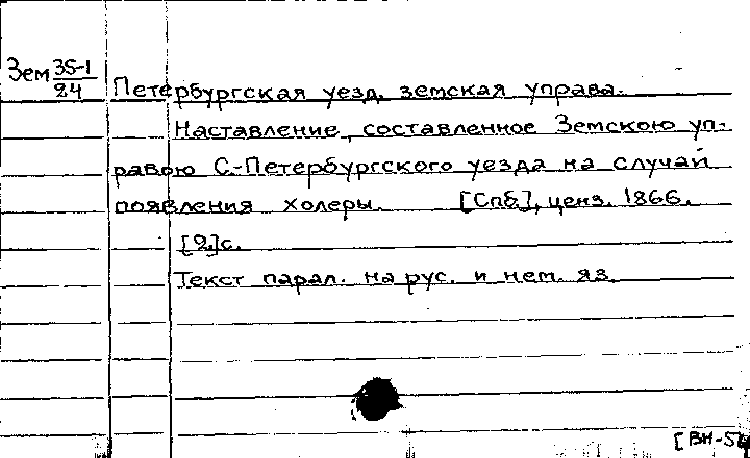 Зем 35-1
24
Петербургская уезд. земская управа.
Наставление, составленное Земскою уп-
равою С-Петербургского уезда на случай
появления холеры. [Спб], ценз. 1866.
[2]с.
Текст парал. на рус. и нем. яз.
[ВН-54